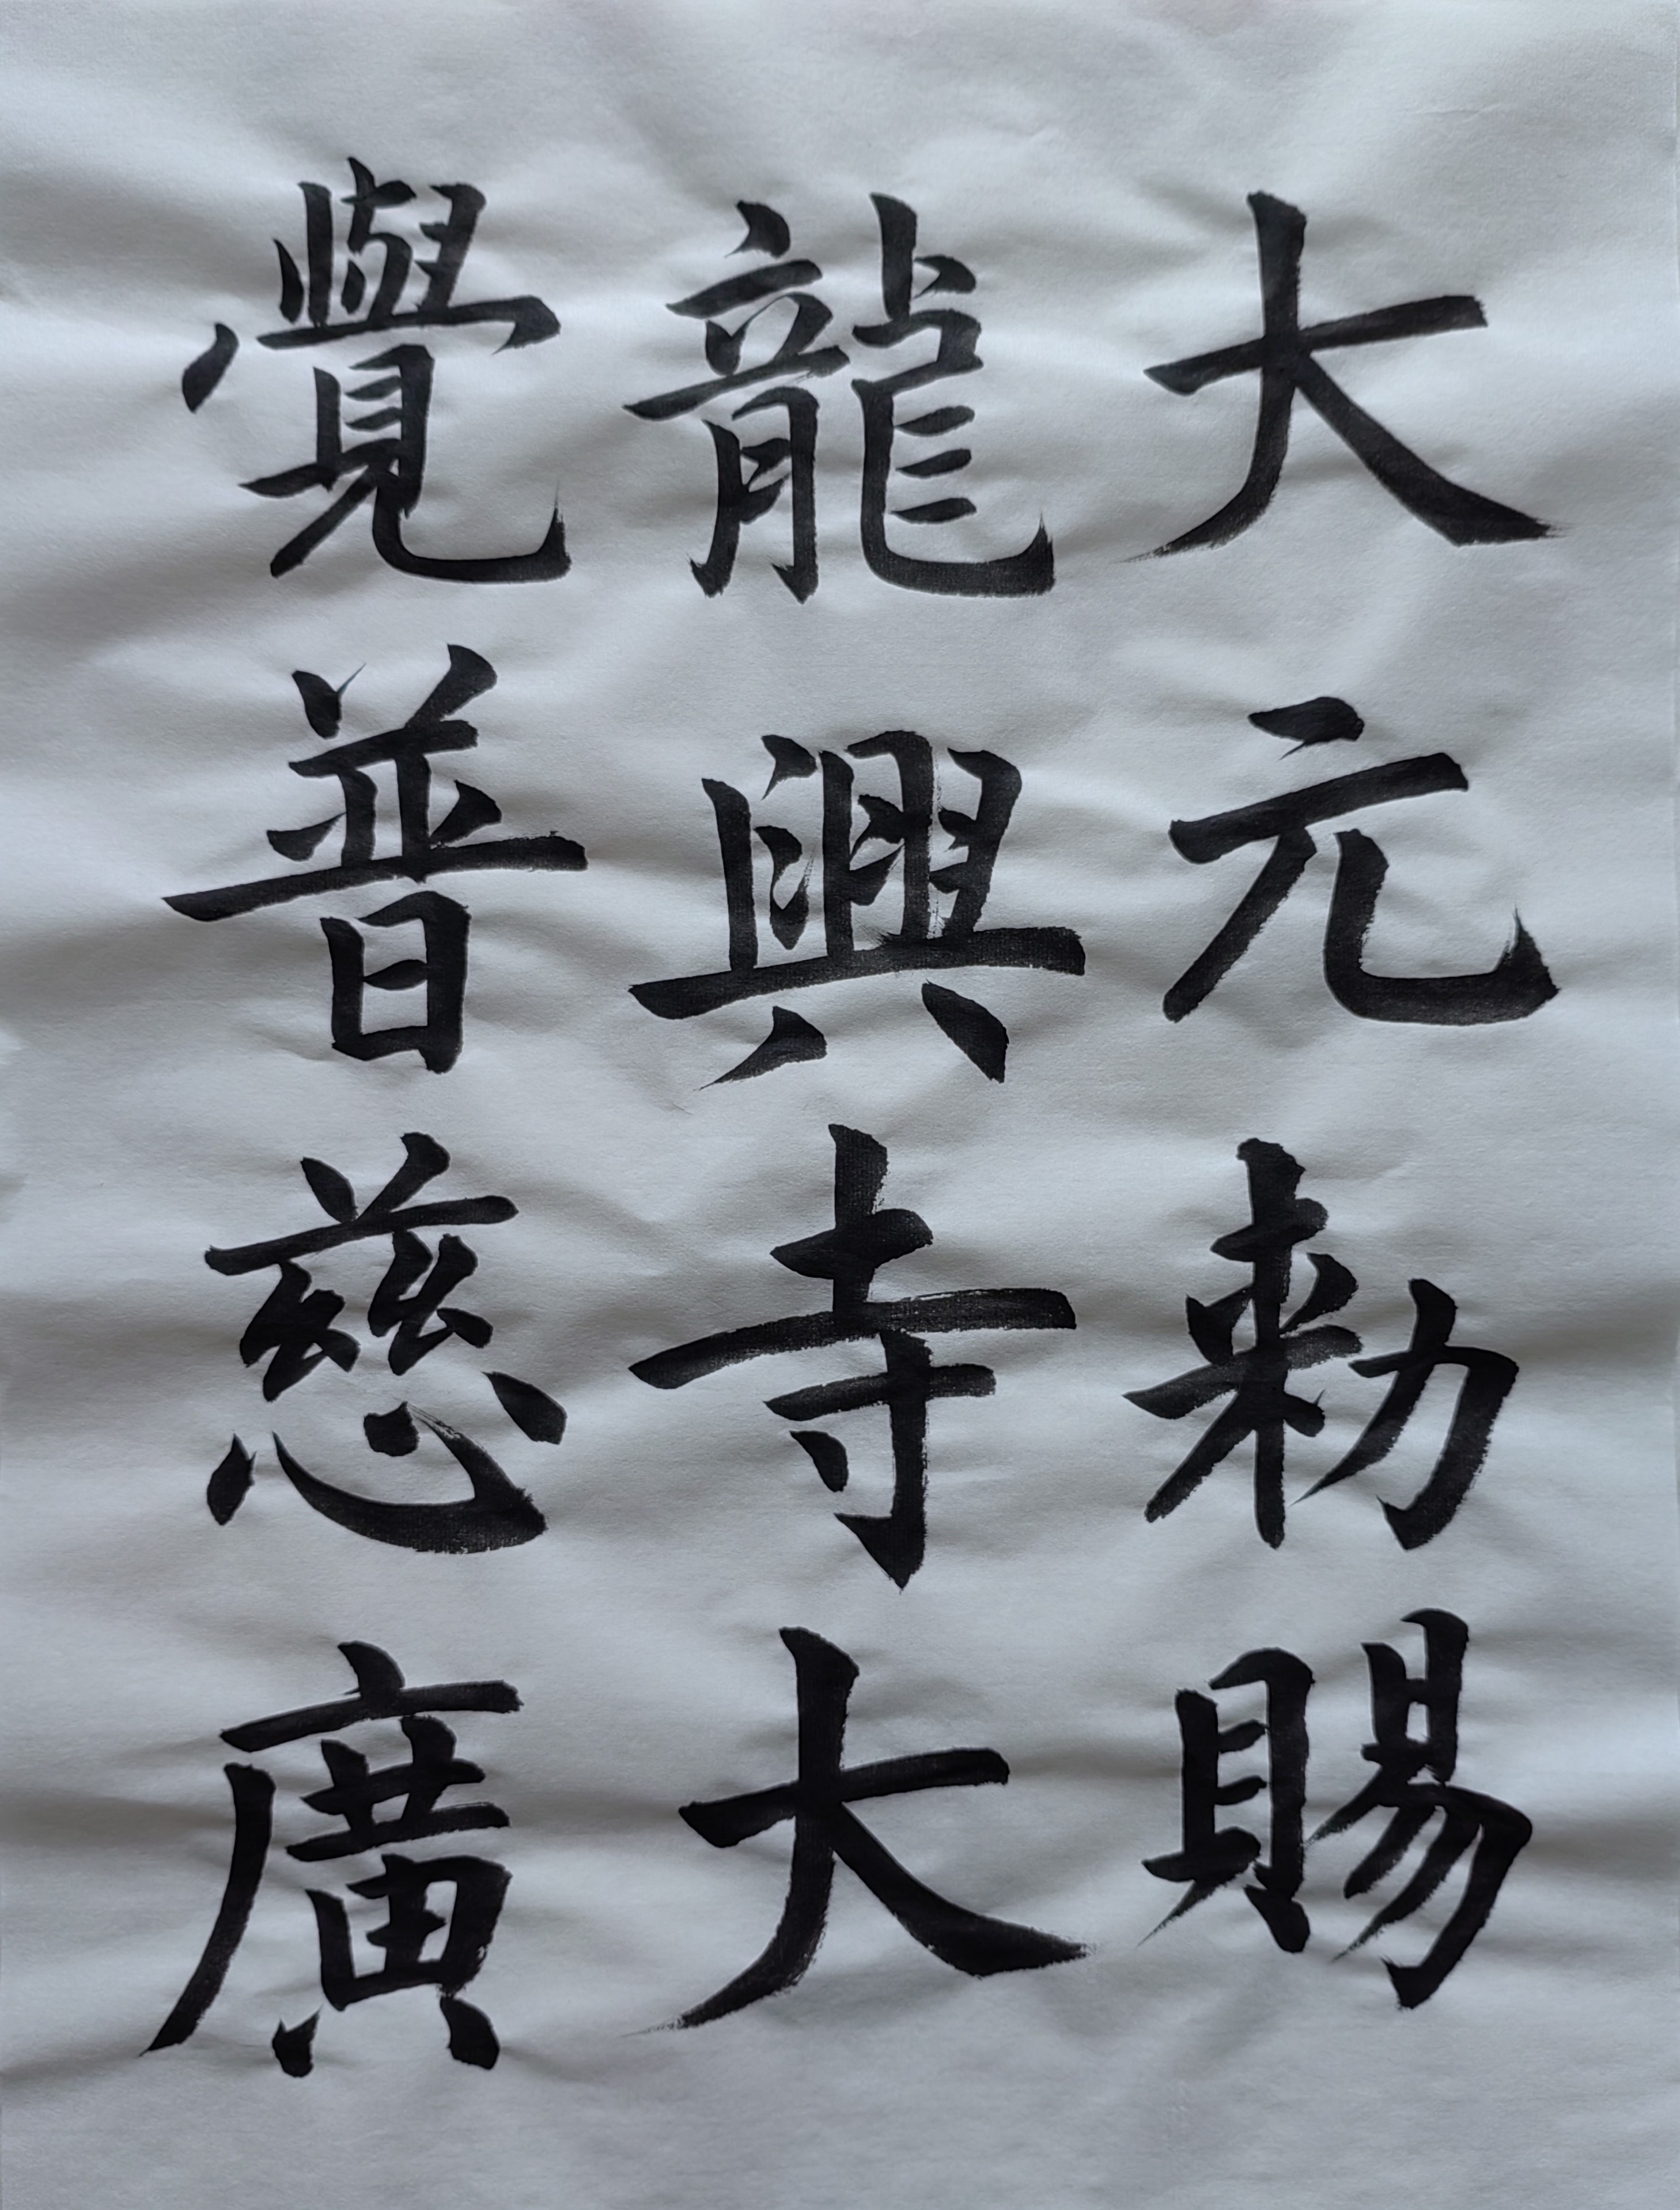 大元勑賜
龍興寺大
覺普慈廣